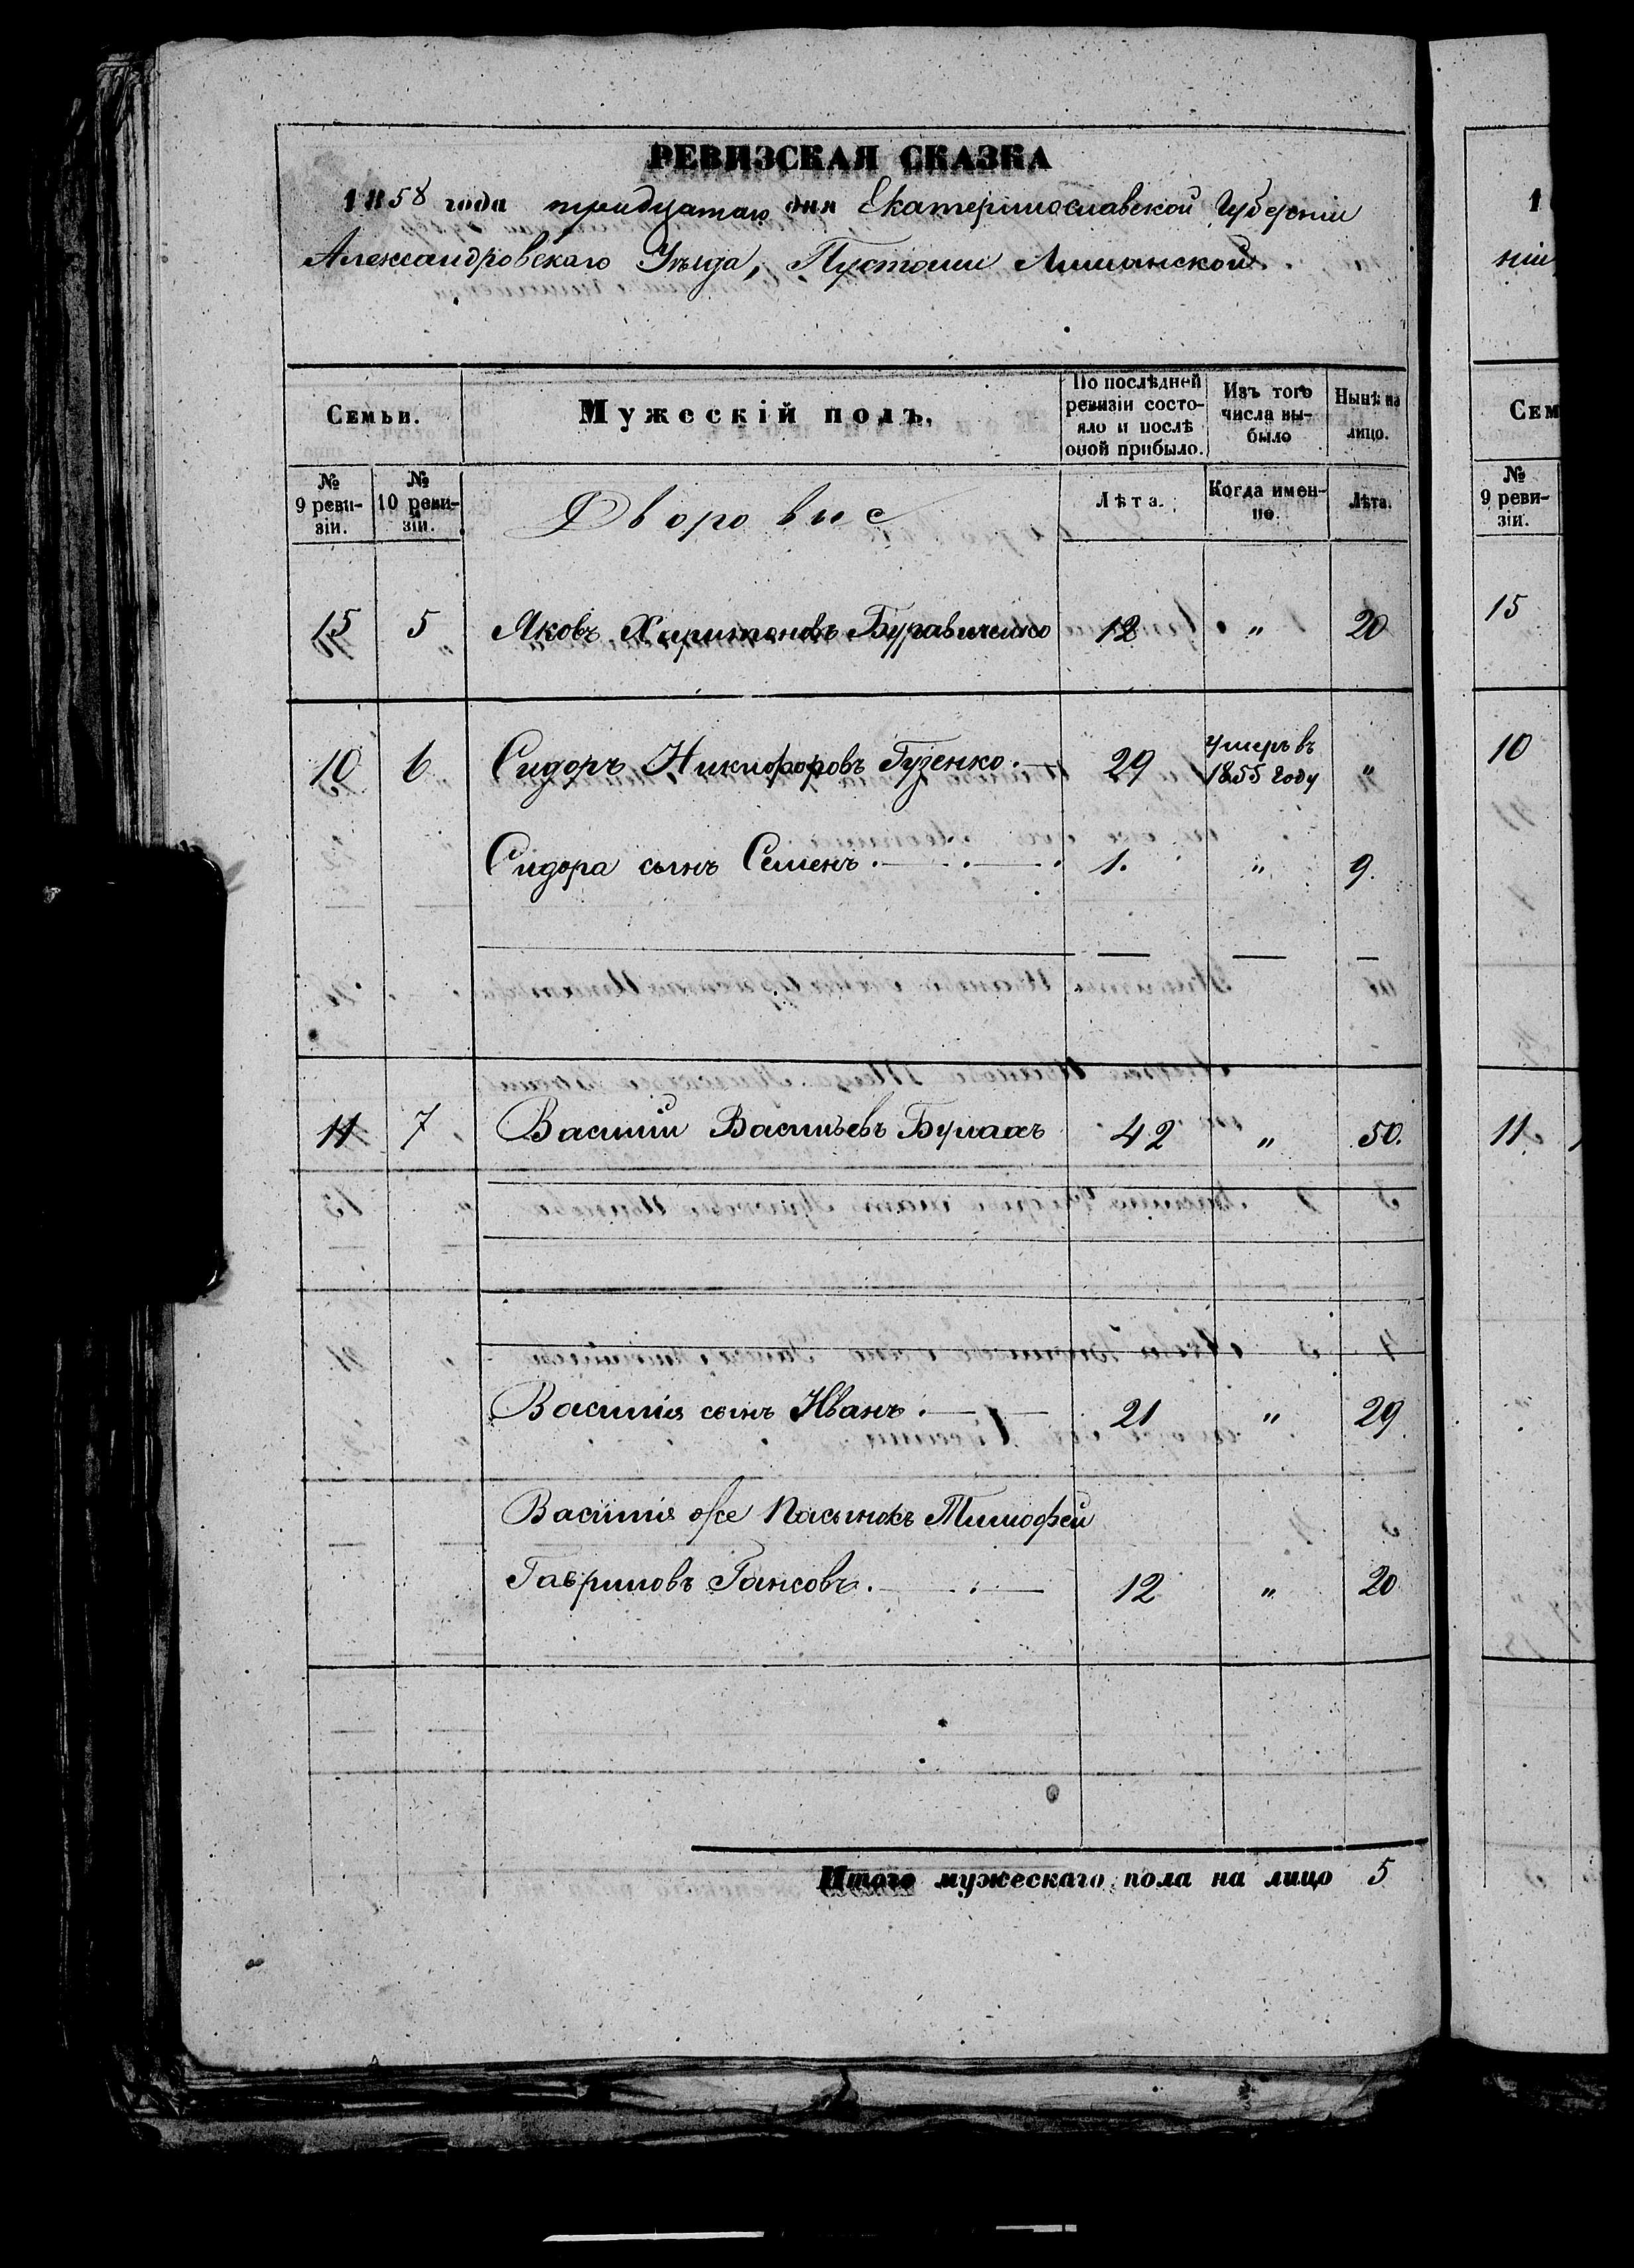 РЕВИЗСКАЯ СКАЗКА
1858 года тридцатаго дня Екатеринославской Губерніи
Александровскаго Уѣзда, Пустоши Лиманской
Семьи.
Мужескій полъ.
По послѣдней ревизіи состо-
яло и послѣ
оной прибыло.
Изъ того
числа вы-
было
Нынѣ на
лицо.
№
9 реви-
зіи.
№
10 реви-
зіи.
Дворовые
Лѣта.
Когда имен-
но.
Лѣта.
15 5 Яковъ Харитоновъ Буравиченко 12 " 20
10 6 Сидоръ Никифоровъ Гузенко 29 умеръ въ
1855 году "
Сидора сынъ Семенъ 1. " 9.
11 7 Василій Васильевъ 42 " 50.
Василія сынъ Иванъ 21 " 29
Василія же пасынокъ Тимофей
Гавриловъ 12 " 20
Итого мужескаго пола на лицо 5
1
ніи
Сем
№
9 реви-
зіи.
15
10
11